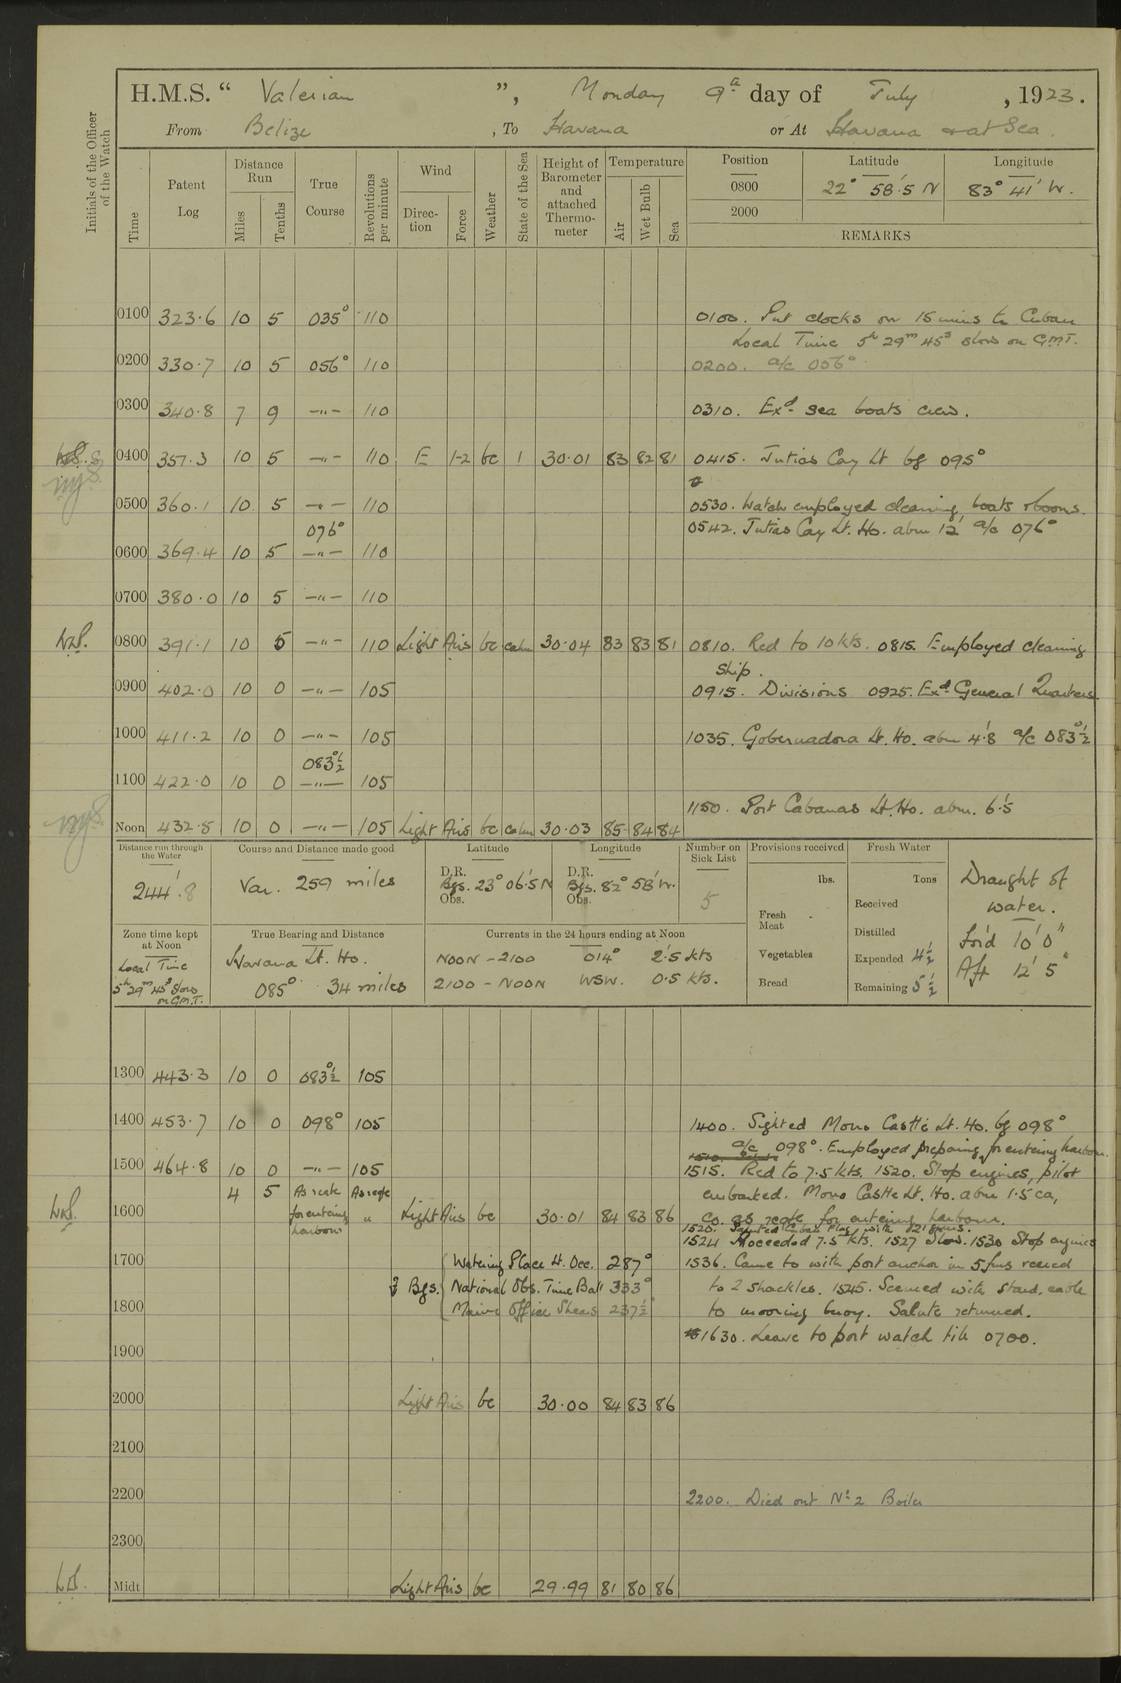 H.M.S. “ Valerian ”, Monday 9th day of July , 1923.
From Belize , To Havana or At Havana & at Sea.
Initials of the Officer of the Watch
Time Patent Log Distance Run Miles Tenths True Course Revolutions per minute Wind Direction Force Weather State of the Sea Height of Barometer and attached Thermometer Temperature Air Wet Bulb Sea
Position Latitude Longitude
0800 22° 58'.5 N 83° 41' W.
2000
REMARKS
0100 323.6 10 5 035° 110 0100. Put clocks on 15 mins to Cuban
Local Time 5h 29m 45s slow on G.M.T.
0200 330.7 10 5 056° 110 0200. a/c 056°
0300 340.8 7 9 -"- 110 0310. Exd. sea boats crew.
0400 357.3 10 5 -"- 110 E 1-2 bc 1 30.01 83 82 81 0415. Jutias Cay Lt bg 095°
0500 360.1 10 5 -"- 110 0530. Watch employed cleaning boats & booms.
076° 0542. Jutias Cay Lt. Ho. abm 12' a/c 076°
0600 369.4 10 5 -"- 110
0700 380.0 10 5 -"- 110
0800 391.1 10 5 -"- 110 Light Airs bc calm 30.04 83 83 81 0810. Red to 10 kts. 0815. Employed cleaning
ship.
0900 402.0 10 0 -"- 105 0915. Divisions 0925. Exd. General Quarters.
1000 411.2 10 0 -"- 105 1035. Gobernadora Lt. Ho. abm 4'.8 a/c 083°½
083°½
1100 422.0 10 0 -"- 105
1150. Port Cabanas Lt. Ho. abm. 6'.5
Noon 432.8 10 0 -"- 105 Light Airs bc calm 30.03 85 84 84
Distance run through the Water Course and Distance made good Latitude Longitude Number on Sick List Provisions received Fresh Water Draught of water.
244'.8 Var. 259 miles D.R. Bgs. 23° 06'.5 N Obs. D.R. Bgs. 82° 58' W. Obs. 5
lbs. Tons
Fresh Meat Received
Zone time kept at Noon True Bearing and Distance Currents in the 24 hours ending at Noon Distilled For'd 10' 0"
Local Time 5h 29m 45s slow on G.M.T. Havana Lt. Ho. NOON - 2100 014° 2.5 kts Vegetables Expended 4½ Aft 12' 5"
085° 34 miles 2100 - NOON WSW. 0.5 kts. Bread Remaining 5½
1300 443.3 10 0 083°½ 105
1400 453.7 10 0 098° 105 1400. Sighted Morro Castle Lt. Ho. bg 098°
a/c 098°. Employed preparing for entering harbour.
1500 464.8 10 0 -"- 105 1515. Red to 7.5 kts. 1520. Stop engines, pilot
4 5 As reqte for entering harbour As reqte embarked. Morro Castle Lt. Ho. abm 1.5 ca,
1600 " Light Airs bc 30.01 84 83 86 Co. as reqte for entering harbour.
1520. Saluted Cuban Flag with 21 guns.
1524 Proceeded 7.5 kts. 1527 Slow. 1530 Stop engines
1700 Bgs. Watering Place Lt. Occ. 287° 1536. Came to with port anchor in 5 fms veered
National Obs. Time Ball 333° to 2 shackles. 1545. Secured with starb. cable
1800 Marine Office Shears 237½° to mooring buoy. Salute returned.
1630. Leave to port watch till 0700.
1900
2000 Light Airs bc 30.00 84 83 86
2100
2200 2200. Died out No. 2 Boiler
2300
Midt Light Airs bc 29.99 81 80 86